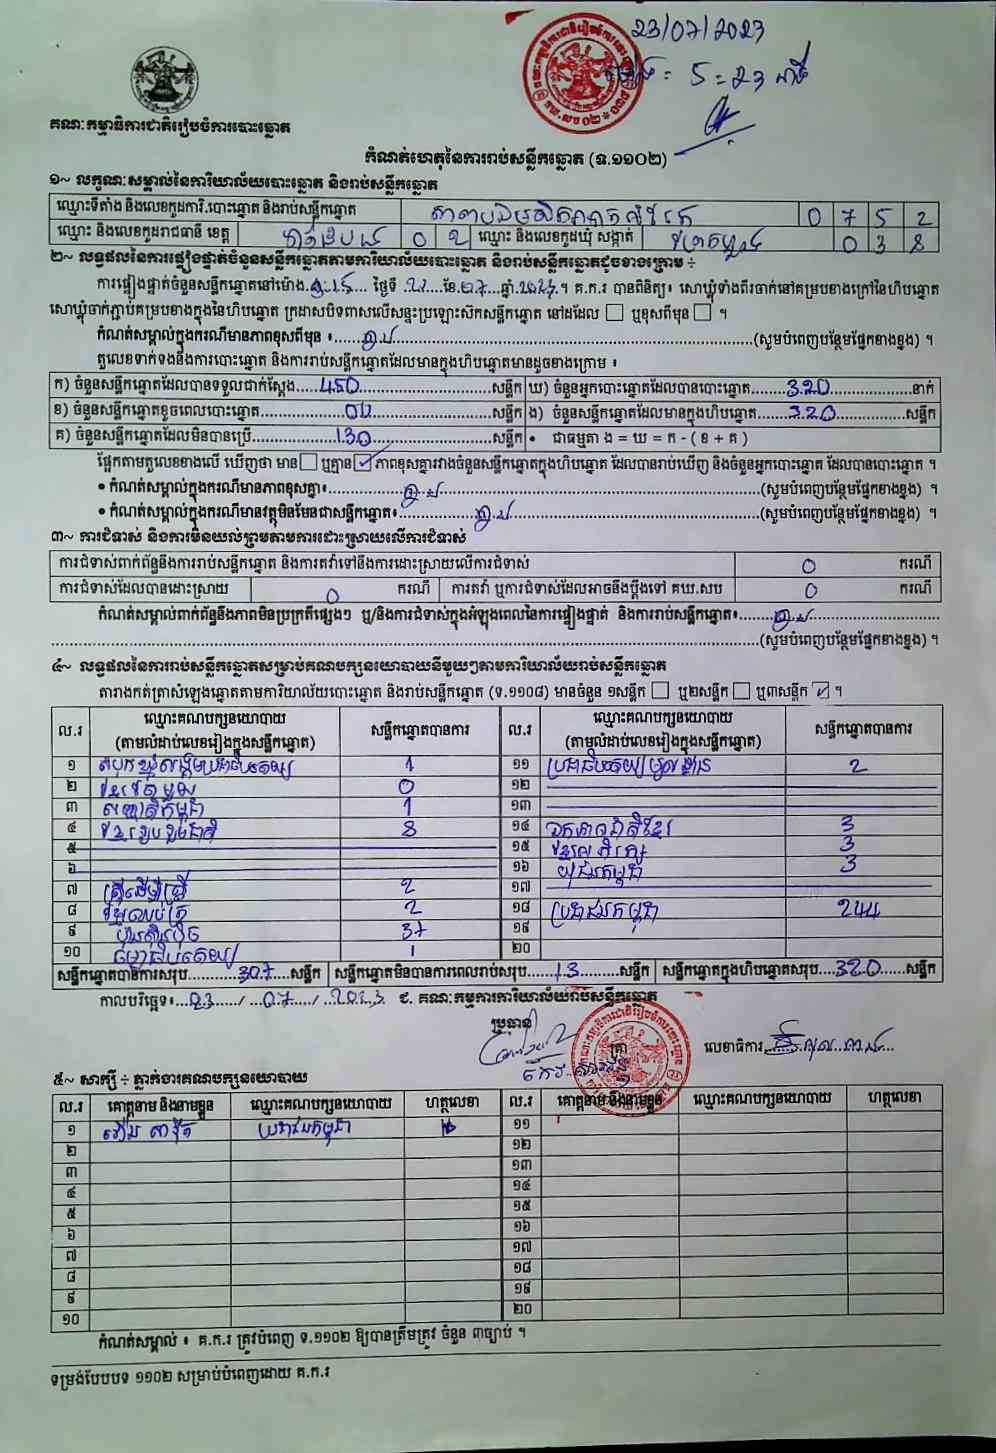 23/07/2023
5:23 នាទី
គណៈកម្មាធិការជាតិរៀបចំការបោះឆ្នោត
កំណត់ហេតុនៃការរាប់សន្លឹកឆ្នោត (ទ.១១០២)
១~ លក្ខណៈសម្គាល់នៃការិយាល័យបោះឆ្នោត និងរាប់សន្លឹកឆ្នោត
ឈ្មោះទីតាំង និងលេខកូដការិ.បោះឆ្នោត និងរាប់សន្លឹកឆ្នោត 0 7 5 2
ឈ្មោះ និងលេខកូដរាជធានី ខេត្ត បាត់ដំបង 0 2 ឈ្មោះ និងលេខកូដឃុំ សង្កាត់ 0 3 8
២~ លទ្ធផលនៃការផ្ទៀងផ្ទាត់ចំនួនសន្លឹកឆ្នោតតាមការិយាល័យបោះឆ្នោត និងរាប់សន្លឹកឆ្នោតដូចខាងក្រោម ÷
ការផ្ទៀងផ្ទាត់ចំនួនសន្លឹកឆ្នោតនៅម៉ោង ថ្ងៃទី ខែ 07 ឆ្នាំ 2023។ គ.ក.រ បានពិនិត្យ៖ សោឃ្លុំទាំងពីរចាក់នៅគម្របខាងក្រៅនៃហិបឆ្នោត
សោឃ្លុំចាក់ភ្ជាប់គម្របខាងក្នុងនៃហិបឆ្នោត ក្រដាសបិទពាសលើសន្ទះប្រឡោះស៊កសន្លឹកឆ្នោត នៅដដែល ☐ ឬខុសពីមុន ☐ ។
កំណត់សម្គាល់ក្នុងករណីមានភាពខុសពីមុន ៖ គ្មាន (សូមបំពេញបន្ថែមផ្នែកខាងខ្នង) ។
តួលេខទាក់ទងនឹងការបោះឆ្នោត និងការរាប់សន្លឹកឆ្នោតដែលមានក្នុងហិបឆ្នោតមានដូចខាងក្រោម ៖
ក) ចំនួនសន្លឹកឆ្នោតដែលបានទទួលជាក់ស្តែង 450 សន្លឹក ឃ) ចំនួនអ្នកបោះឆ្នោតដែលបានបោះឆ្នោត 320 នាក់
ខ) ចំនួនសន្លឹកឆ្នោតខូចពេលបោះឆ្នោត 00 សន្លឹក ង) ចំនួនសន្លឹកឆ្នោតដែលមានក្នុងហិបឆ្នោត 320 សន្លឹក
គ) ចំនួនសន្លឹកឆ្នោតដែលមិនបានប្រើ 130 សន្លឹក • ជាធម្មតា ង = ឃ = ក - ( ខ + គ )
ផ្អែកតាមតួលេខខាងលើ ឃើញថា មាន ☐ ឬគ្មាន ☑ ភាពខុសគ្នារវាងចំនួនសន្លឹកឆ្នោតក្នុងហិបឆ្នោត ដែលបានរាប់ឃើញ និងចំនួនអ្នកបោះឆ្នោត ដែលបានបោះឆ្នោត ។
• កំណត់សម្គាល់ក្នុងករណីមានភាពខុសគ្នា៖ គ្មាន (សូមបំពេញបន្ថែមផ្នែកខាងខ្នង) ។
• កំណត់សម្គាល់ក្នុងករណីមានវត្ថុមិនមែនជាសន្លឹកឆ្នោត៖ គ្មាន (សូមបំពេញបន្ថែមផ្នែកខាងខ្នង) ។
៣~ ការជំទាស់ និងការមិនយល់ព្រមតាមការដោះស្រាយលើការជំទាស់
ការជំទាស់ពាក់ព័ន្ធនឹងការរាប់សន្លឹកឆ្នោត និងការតវ៉ាទៅនឹងការដោះស្រាយលើការជំទាស់ 0 ករណី
ការជំទាស់ដែលបានដោះស្រាយ 0 ករណី ការតវ៉ា ឬការជំទាស់ដែលអាចនឹងប្តឹងទៅ គឃ.សប 0 ករណី
កំណត់សម្គាល់ពាក់ព័ន្ធនឹងភាពមិនប្រក្រតីផ្សេងៗ ឬ/និងការជំទាស់ក្នុងអំឡុងពេលនៃការផ្ទៀងផ្ទាត់ និងការរាប់សន្លឹកឆ្នោត៖ គ្មាន
(សូមបំពេញបន្ថែមផ្នែកខាងខ្នង) ។
៤~ លទ្ធផលនៃការរាប់សន្លឹកឆ្នោតសម្រាប់គណបក្សនយោបាយនីមួយៗតាមការិយាល័យរាប់សន្លឹកឆ្នោត
តារាងកត់ត្រាសំឡេងឆ្នោតតាមការិយាល័យបោះឆ្នោត និងរាប់សន្លឹកឆ្នោត (ទ.១១០៨) មានចំនួន ១សន្លឹក ☐ ឬ២សន្លឹក ☐ ឬ៣សន្លឹក ☑ ។
ល.រ ឈ្មោះគណបក្សនយោបាយ សន្លឹកឆ្នោតបានការ ល.រ ឈ្មោះគណបក្សនយោបាយ សន្លឹកឆ្នោតបានការ
(តាមលំដាប់លេខរៀងក្នុងសន្លឹកឆ្នោត) (តាមលំដាប់លេខរៀងក្នុងសន្លឹកឆ្នោត)
១ សំបុកឃ្មុំសង្គមប្រជាធិបតេយ្យ 1 ១១ 2
២ 0 ១២
៣ 1 ១៣
៤ ខ្មែររួបរួមជាតិ 8 ១៤ ឯកភាពជាតិខ្មែរ 3
៥ ១៥ 3
៦ ១៦ យុវជនកម្ពុជា 3
៧ 2 ១៧
៨ 2 ១៨ ប្រជាជនកម្ពុជា 244
៩ ហ៊្វុនស៊ិនប៉ិច 37 ១៩
១០ ធម្មាធិបតេយ្យ 1 ២០
សន្លឹកឆ្នោតបានការសរុប 307 សន្លឹក សន្លឹកឆ្នោតមិនបានការពេលរាប់សរុប 13 សន្លឹក សន្លឹកឆ្នោតក្នុងហិបឆ្នោតសរុប 320 សន្លឹក
កាលបរិច្ឆេទ៖ 23 / 07 / 2023 ជ. គណៈកម្មការការិយាល័យរាប់សន្លឹកឆ្នោត
ប្រធាន ត្រា លេខាធិការ
៥~ សាក្សី ÷ ភ្នាក់ងារគណបក្សនយោបាយ
ល.រ គោត្តនាម និងនាមខ្លួន ឈ្មោះគណបក្សនយោបាយ ហត្ថលេខា ល.រ គោត្តនាម និងនាមខ្លួន ឈ្មោះគណបក្សនយោបាយ ហត្ថលេខា
១ ប្រជាជនកម្ពុជា ១១
២ ១២
៣ ១៣
៤ ១៤
៥ ១៥
៦ ១៦
៧ ១៧
៨ ១៨
៩ ១៩
១០ ២០
កំណត់សម្គាល់ ៖ គ.ក.រ ត្រូវបំពេញ ទ.១១០២ ឱ្យបានត្រឹមត្រូវ ចំនួន ៣ច្បាប់ ។
ទម្រង់បែបបទ ១១០២ សម្រាប់បំពេញដោយ គ.ក.រ